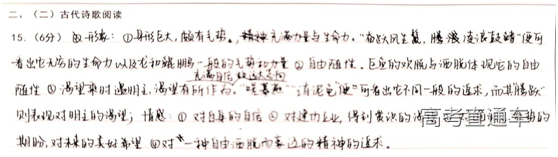 二、（二）古代诗歌阅读
15.（6分）①形象：①身形巨大，颇有气势。精神充满力量与生命力。“奋跃风生鬣，腾凌浪鼓鳍”便可
看出它无穷的生命力以及龙和鲲鹏一般的气势和力量 ②自由随性。巨鱼的欢脱与洒脱体现它的自由
随性 ③渴望来时遇明主，渴望有所作为。充满自信 便可看出它不同一般的追求，而其腾跃
则表现对明主的渴望；情感：①对自身的自信 ②对建功立业，得到赏识的渴
期盼，对未来的美好希望 ③对一种自由洒脱而高远的精神的追求。
高考直通车